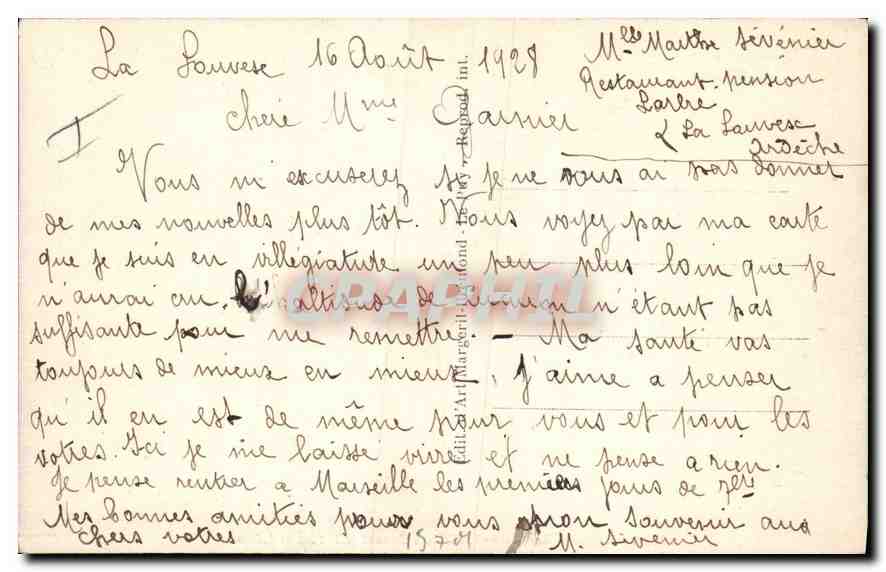 La Louvesc 16 Août 1928
Melle Marthe Sévénier
Restaurant-pension
Larbre
La Louvesc
Ardèche
Chère Mme Garnier
Vous m'excuserez si je ne vous ai pas donner
de mes nouvelles plus tôt. Vous voyez par ma carte
que je suis en villégiature un peu plus loin que je
n'aurai cru. l'altitude de n'étant pas
suffisante pour me remettre. - Ma santé vas
toujours de mieux en mieux, j'aime a penser
qu'il en est de même pour vous et pour les
votres. Ici je me laisse vivre et ne pense a rien.
Je pense rentrer a Marseille les premiers jours de 7bre
Mes bonnes amitiés pour vous mon souvenir aux
chers votres
M. Sévénier
I
Edit. d'Art Margerit-Brémond - Le Puy - Reprod. int.
CPAPHIL